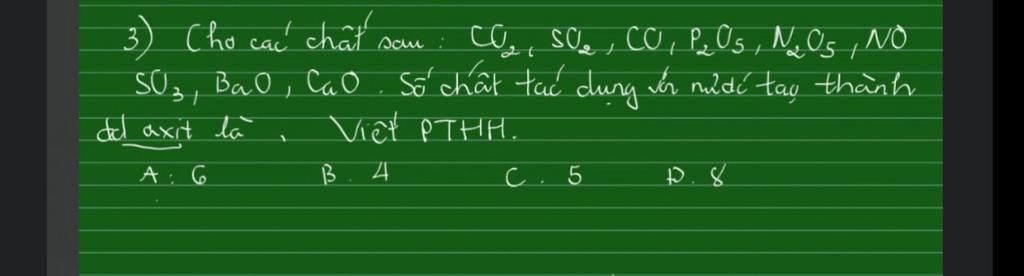 3) Cho các chất sau : CO₂, SO₂, CO, P₂O₅, N₂O₅, NO
SO₃, BaO, CaO. Số chất tác dụng với nước tạo thành
dd axit là . Viết PTHH.
A : 6 B. 4 C. 5 D. 8